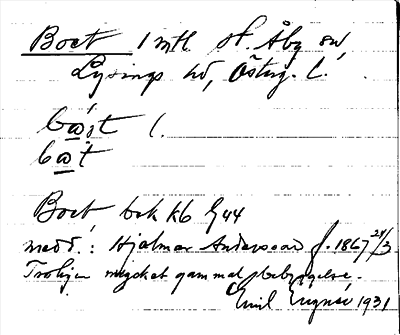 Boet 1 mtl. St. Åby sn,
Lysings hd, Österg. L.
bo̲i̯t l.
bo̲t
Boet bek kb
medd.: Hjalmar Andersson f. 1867 24/3
Troligen mycket gammal bebyggelse.
Emil 1931